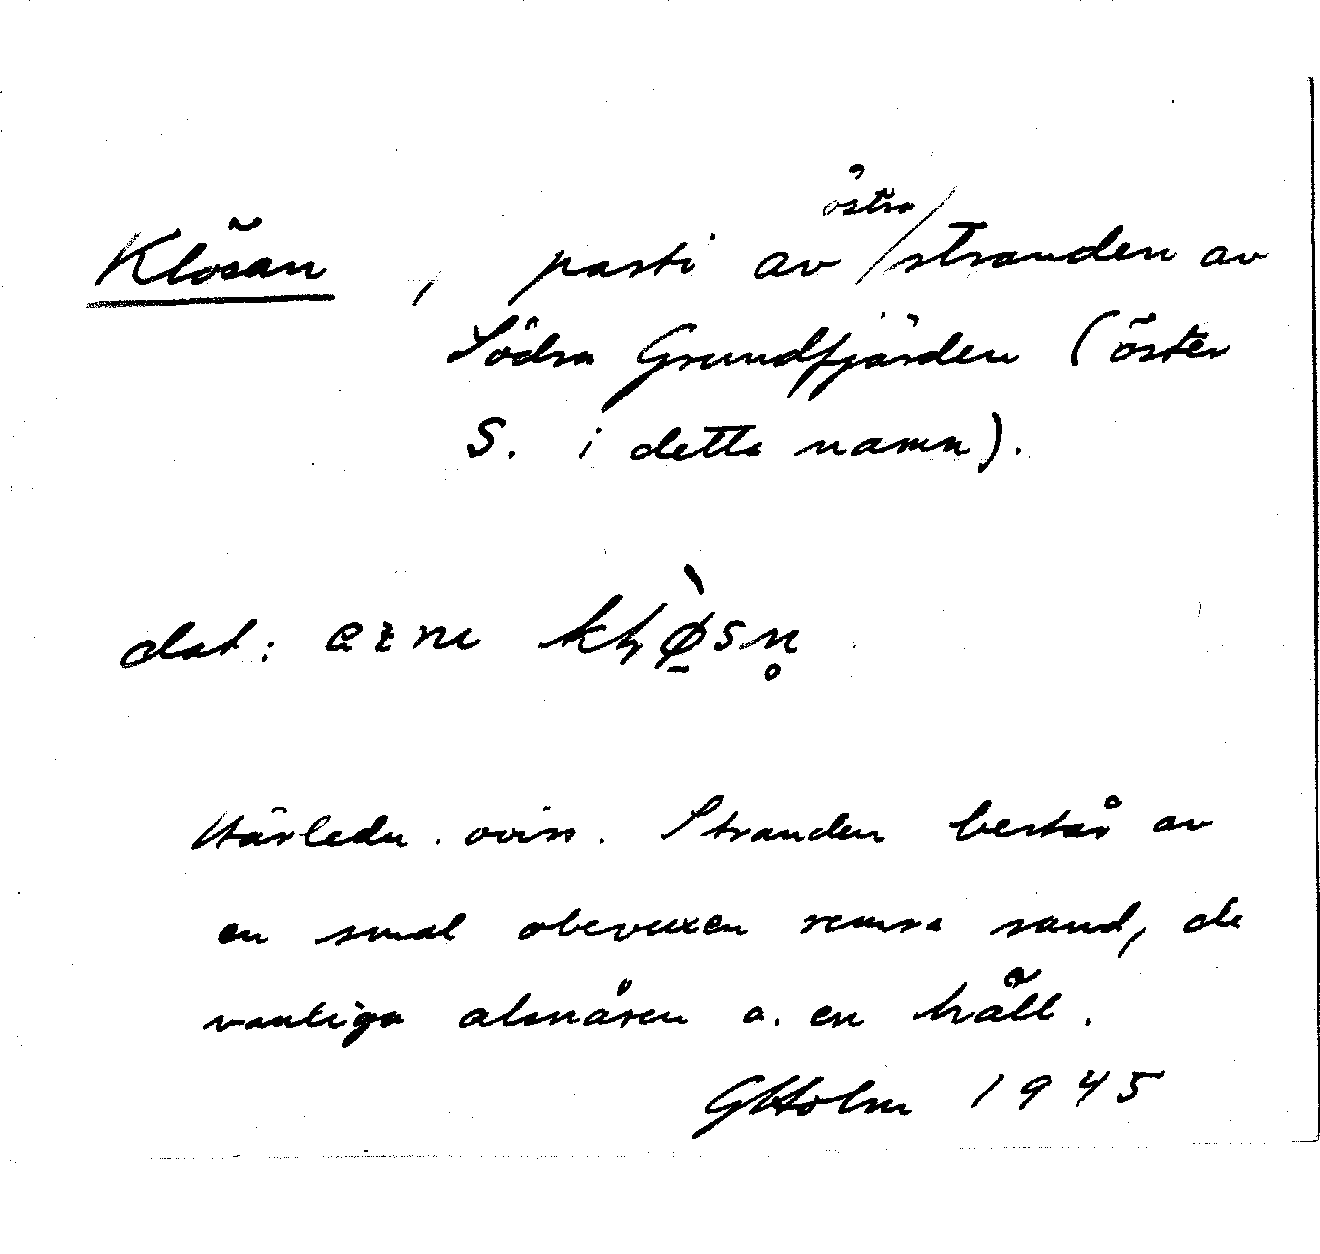 Klösan, parti av östra stranden av
Södra Grundfjärden (öster
S. i detta namn).
dat:
Härledn. oviss. Stranden består av
en smal obevuxen remsa sand, de
vanliga alsnåren o. en häll.
GHolm 1945